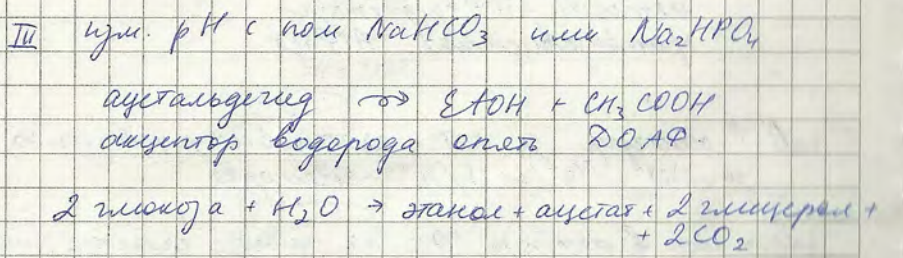 III изм. pH с пом NaHCO₃ или Na₂HPO₄
ацетальдегид ⇝ EtOH + CH₃COOH
акцептор водорода опять ДОАФ.
2 глюкоза + H₂O → этанол + ацетат + 2 глицерол +
+ 2CO₂